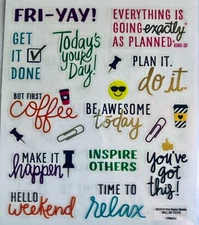 FRI-YAY!
EVERYTHING IS
GOING exactly
AS PLANNED
KIND OF
GET
IT
DONE
Today's
your
Day!
PLAN IT.
do it.
BUT FIRST
coffee
BE AWESOME
today
MAKE IT
happen
INSPIRE
OTHERS
you've
got
this!
HELLO
weekend
TIME TO
relax